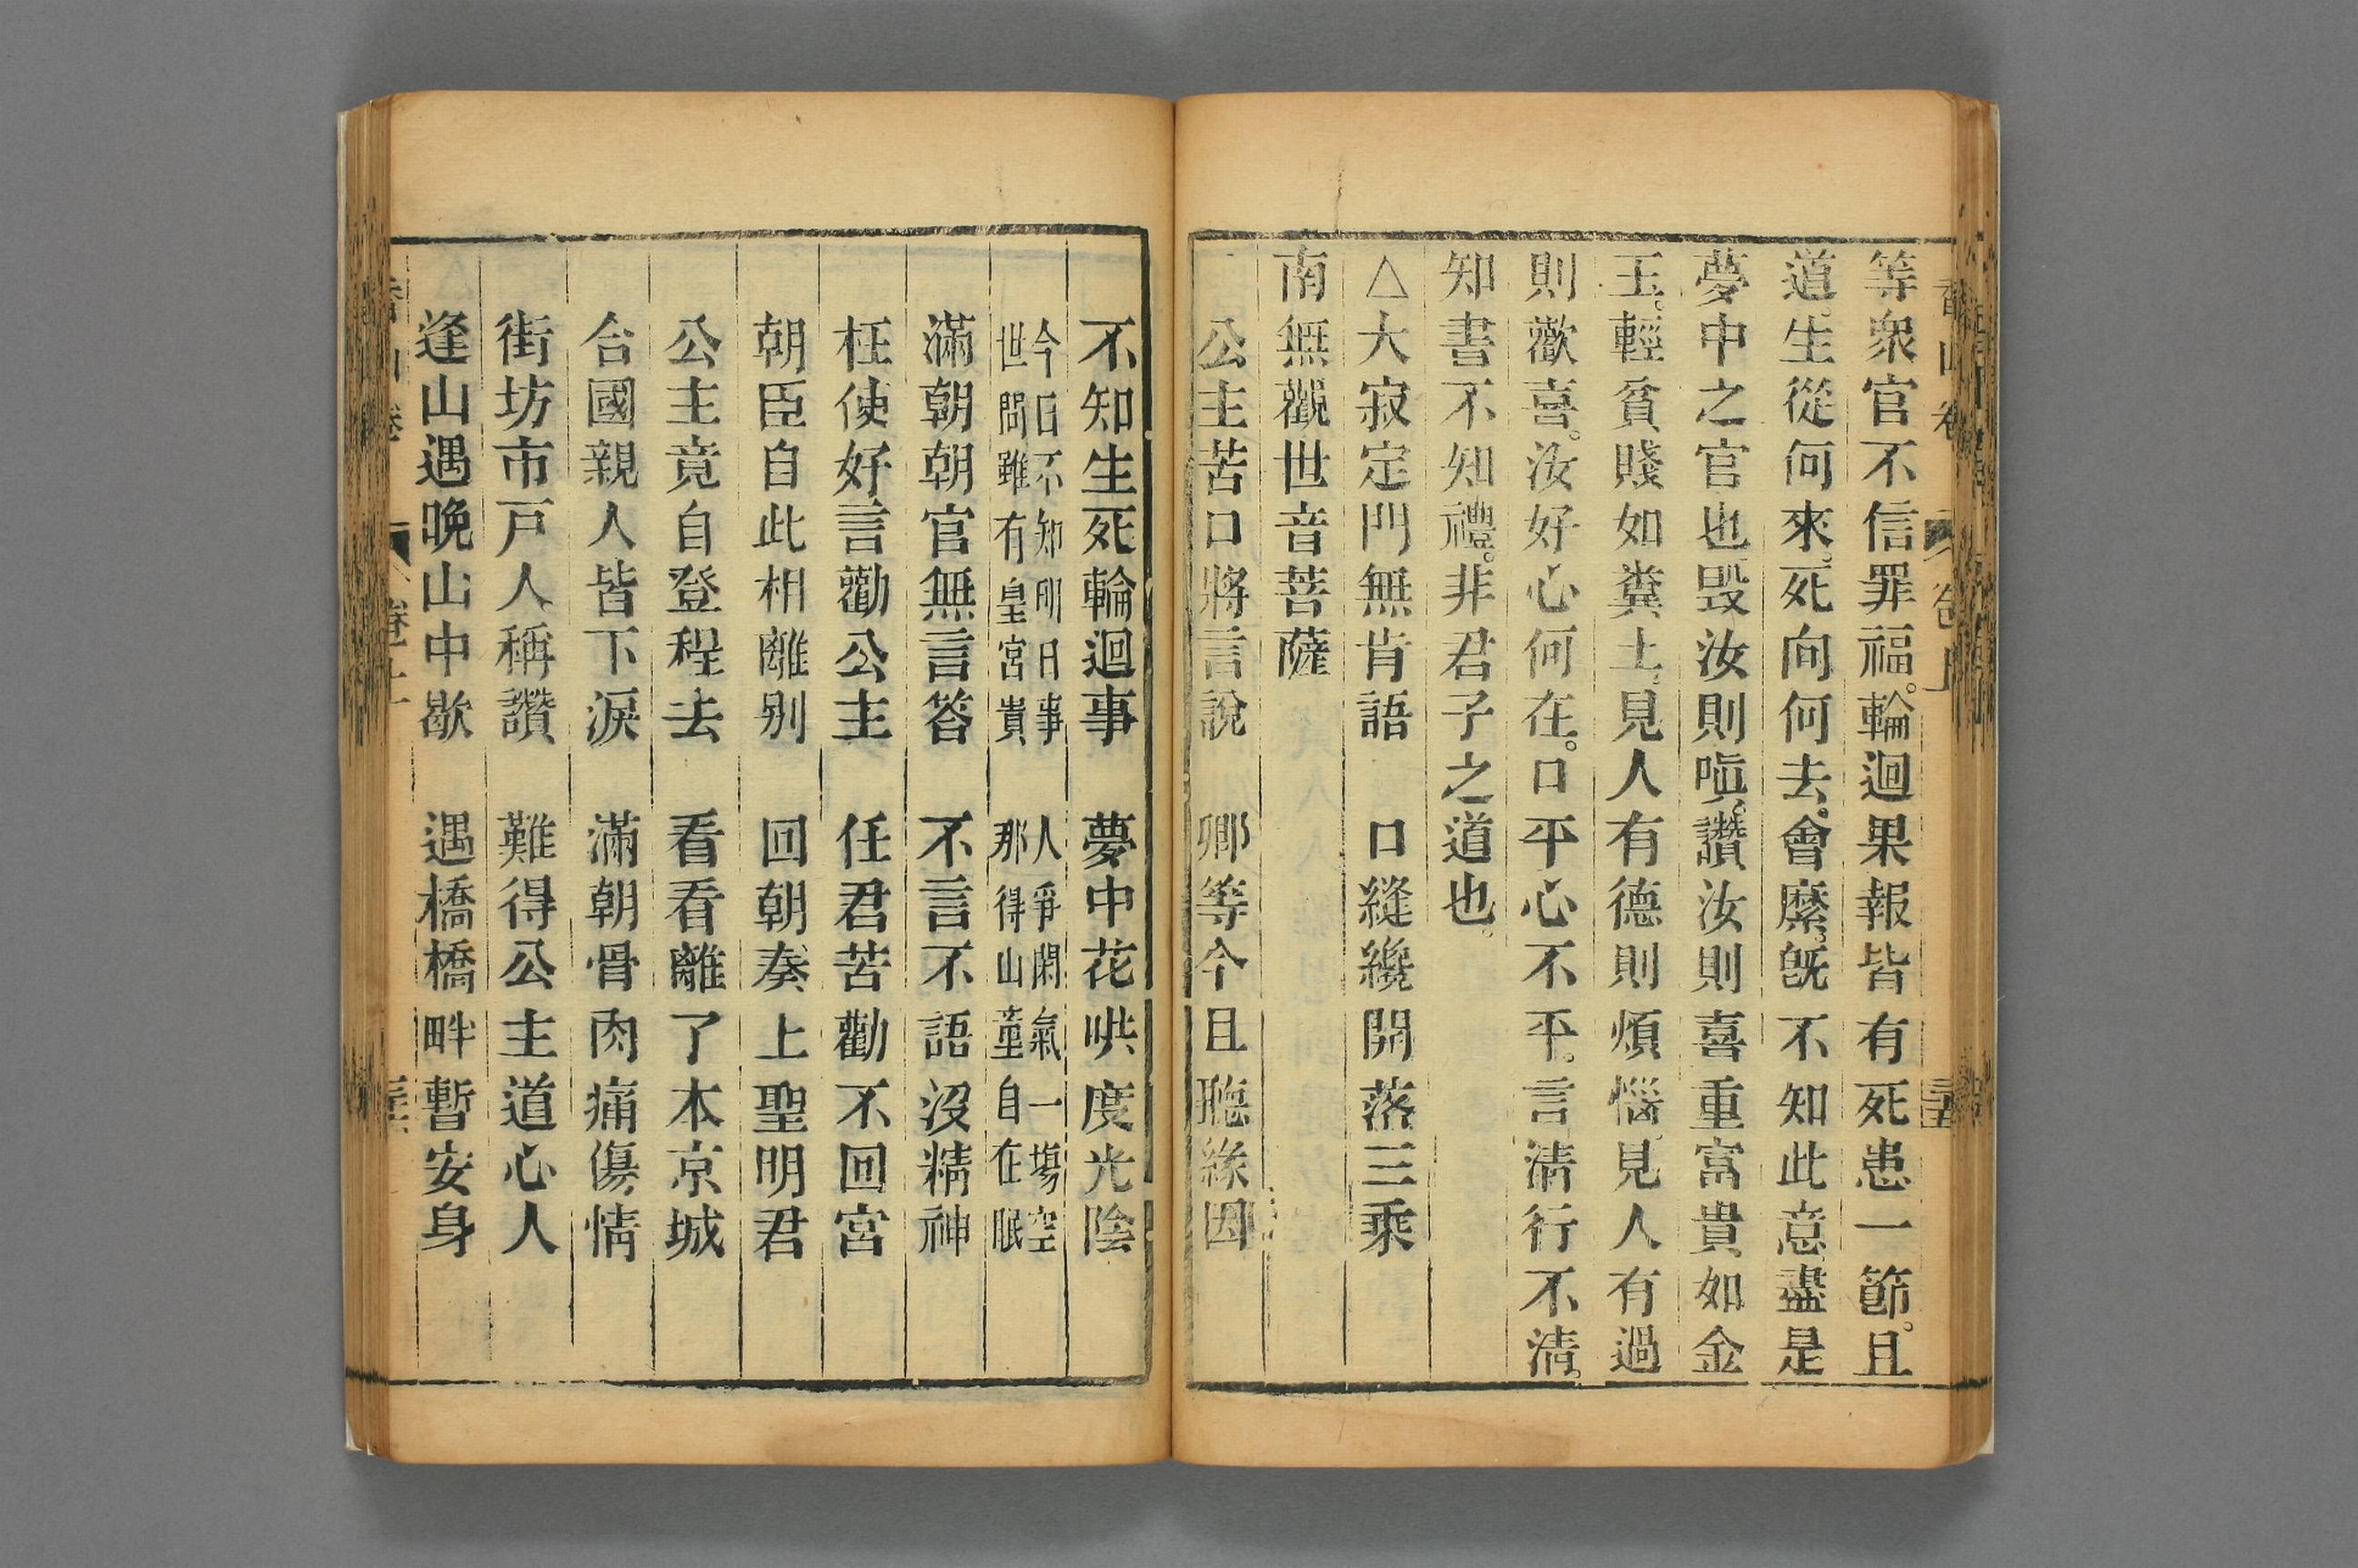 等衆官不信罪福。輪迴果報皆有死患一節。且
道。生從何來。死向何去。會麽。旣不知此意。盡是
夢中之官也。毀汝則嗔。讚汝則喜。重富貴如金
玉。輕貧賤如糞土。見人有德則煩惱。見人有過
則歡喜。汝好心何在。口平心不平。言淸行不淸。
知書不知禮。非君子之道也。
△大寂定門無肯語　口縫纔開落三乘
南無觀世音菩薩
公主苦口將言說　卿等今且聽緣因
不知生死輪迴事　夢中花哄度光陰
今日不知明日事　人爭閑氣一塲空
世間雖有皇宮貴　那得山童自在眠
滿朝朝官無言答　不言不語沒精神
枉使好言勸公主　任君苦勸不回宮
朝臣自此相離别　回朝奏上聖明君
公主竟自登程去　看看離了本京城
合國親人皆下淚　滿朝骨肉痛傷情
街坊市戸人稱讚　難得公主道心人
逢山遇晚山中歇　遇橋橋畔暫安身